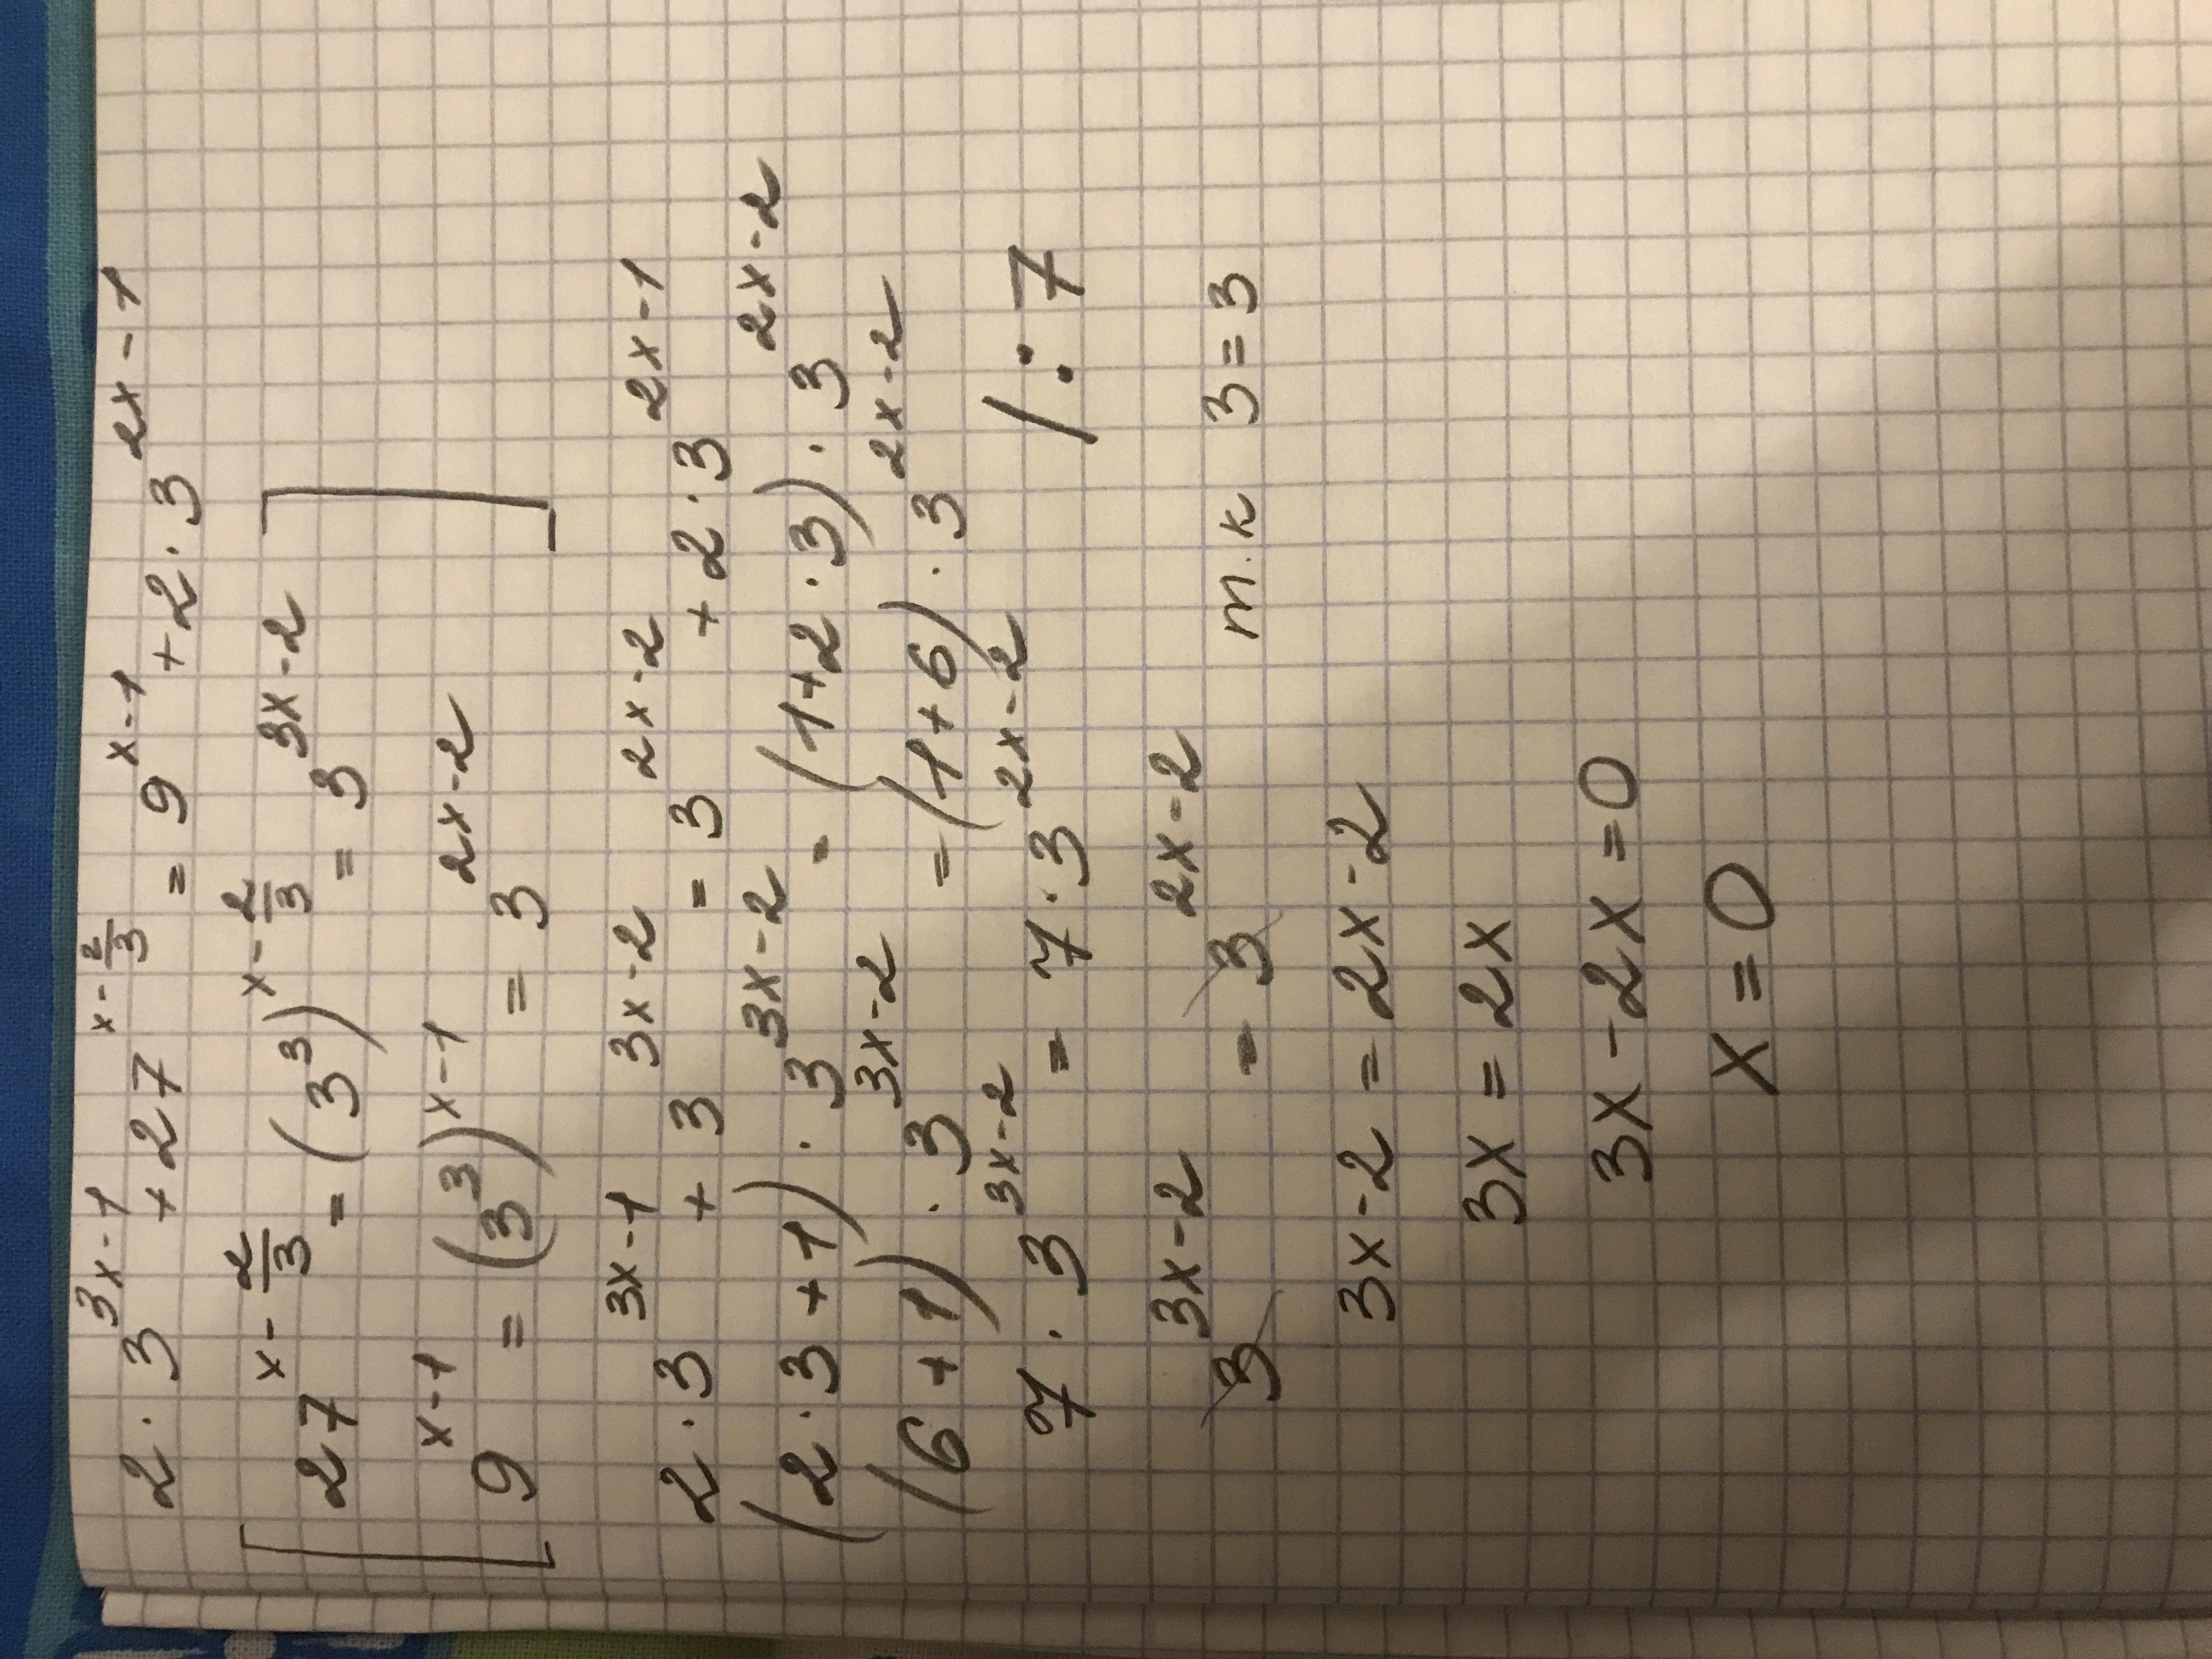 2 · 3^(3x-1) + 27^(x-2/3) = 9^(x-1) + 2 · 3^(2x-1)
[ 27^(x-2/3) = (3^3)^(x-2/3) = 3^(3x-2)
9^(x-1) = (3^3)^(x-1) = 3^(2x-2) ]
2 · 3^(3x-1) + 3^(3x-2) = 3^(2x-2) + 2 · 3^(2x-1)
(2 · 3 + 1) · 3^(3x-2) = (1 + 2 · 3) · 3^(2x-2)
(6 + 1) · 3^(3x-2) = (1 + 6) · 3^(2x-2)
7 · 3^(3x-2) = 7 · 3^(2x-2) / : 7
3^(3x-2) = 3^(2x-2) т.к 3 = 3
3x - 2 = 2x - 2
3x = 2x
3x - 2x = 0
x = 0